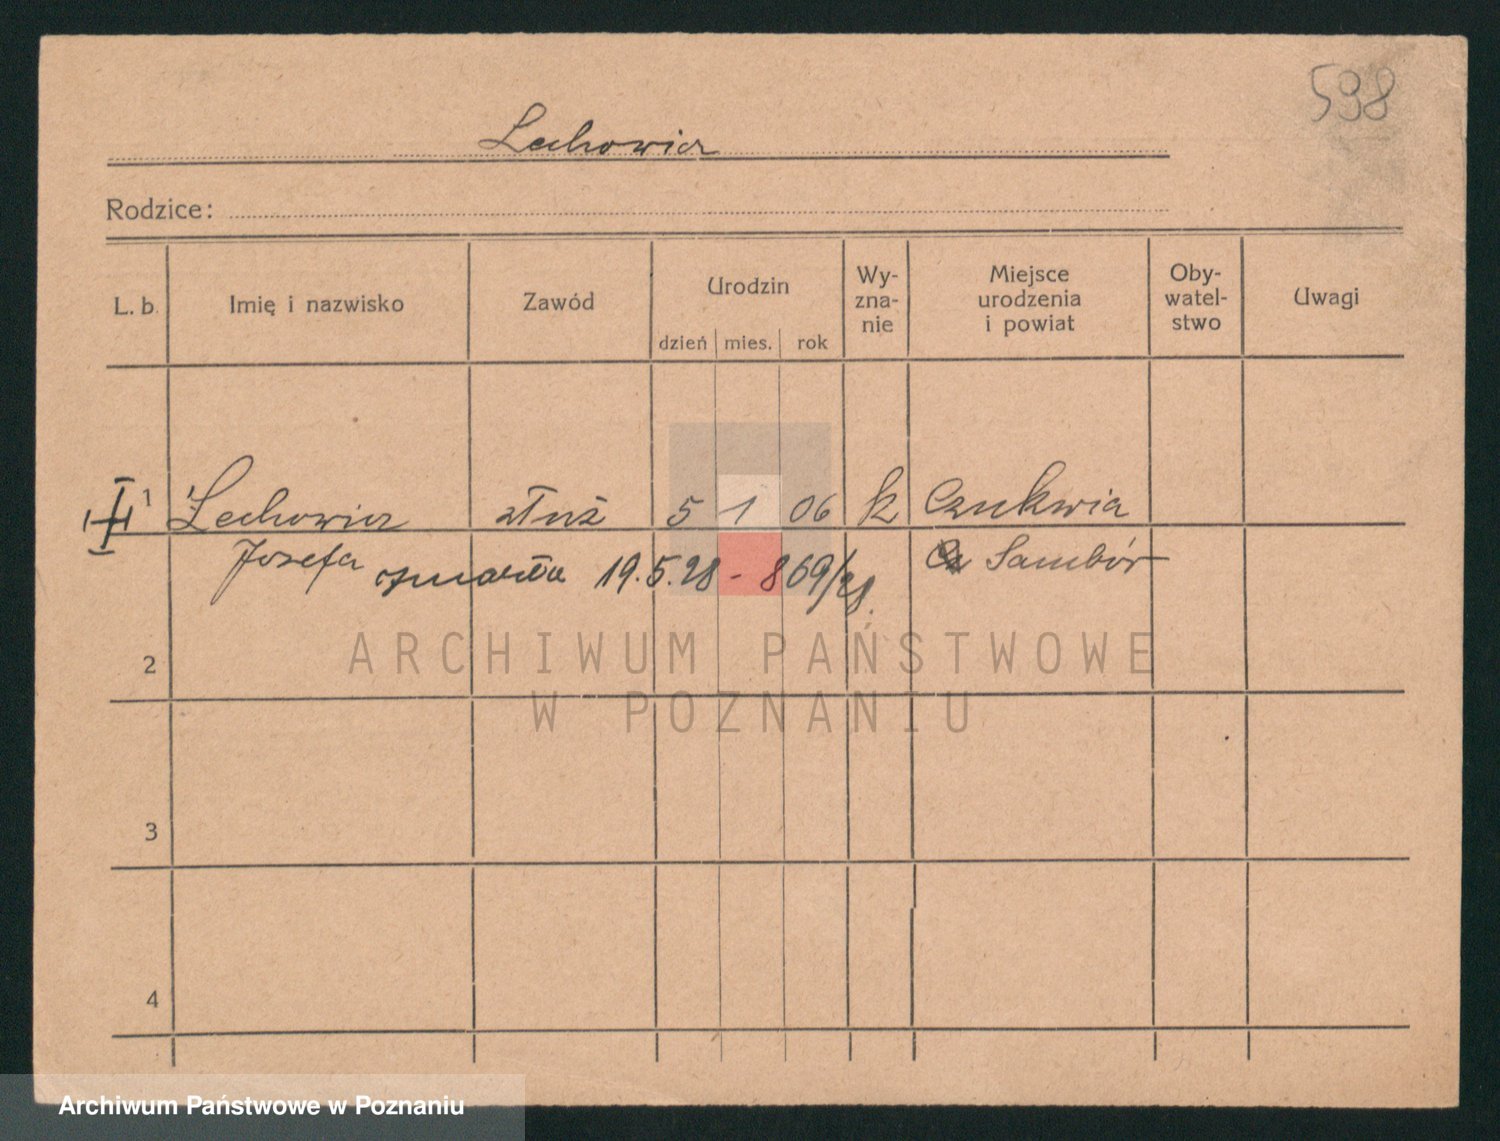 598
Lechowicz
Rodzice:
L. b. Imię i nazwisko Zawód Urodzin dzień mies. rok Wy-zna-nie Miejsce urodzenia i powiat Oby-watel-stwo Uwagi
1 Lechowicz służ 5 1 06 k Czukwia
Józefa zmarła 19.5.28 - 869/28. Sambór
2
ARCHIWUM PAŃSTWOWE
W POZNANIU
3
4
Archiwum Państwowe w Poznaniu